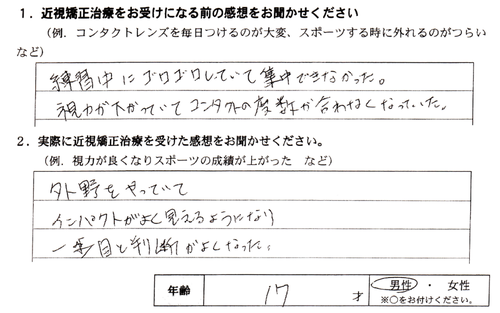 1．近視矯正治療をお受けになる前の感想をお聞かせください
（例．コンタクトレンズを毎日つけるのが大変、スポーツする時に外れるのがつらい
など）
練習中にゴロゴロしていて集中できなかった。
視力が下がっていてコンタクトの度数が合わなくなっていた。
2．実際に近視矯正治療を受けた感想をお聞かせください。
（例．視力が良くなりスポーツの成績が上がった　など）
外野をやっていて
インパクトがよく見えるようになり
一歩目と判断がよくなった。
年齢　17　才　男性　・　女性
※○をお付けください。